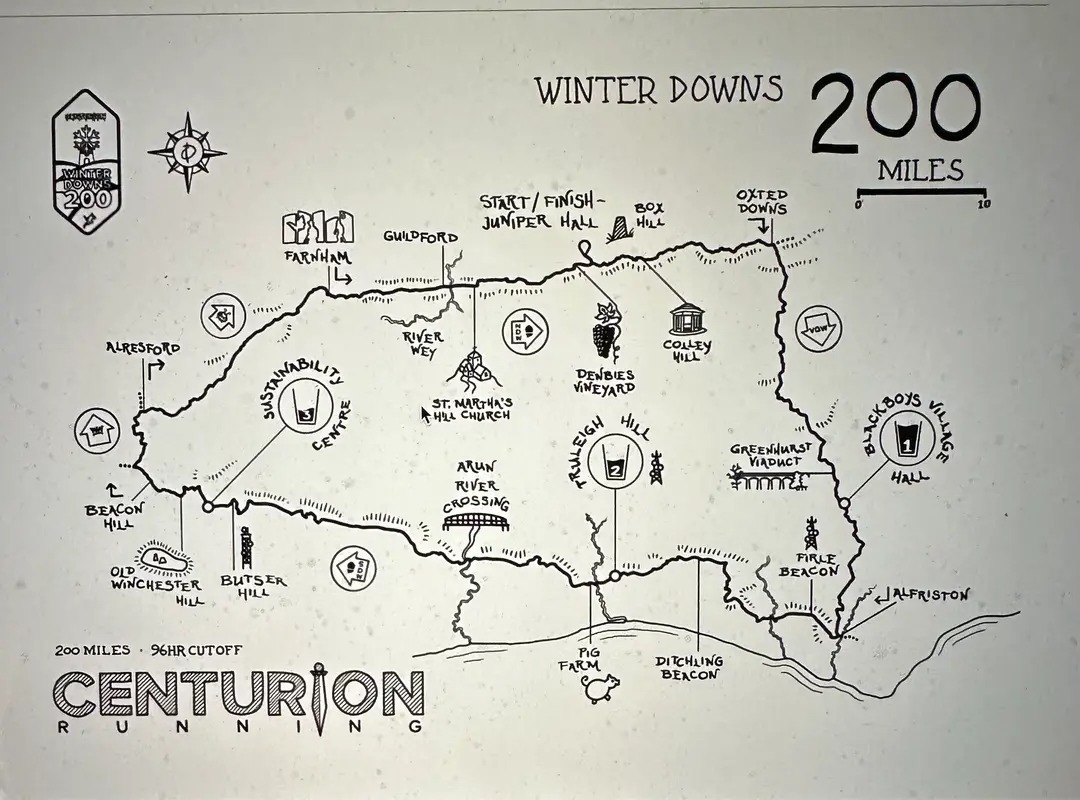 WINTER DOWNS 200
MILES
0 10
WINTER
DOWNS
200
D
START/FINISH-
JUNIPER HALL
BOX
HILL
OXTED
DOWNS
FARNHAM
GUILDFORD
RIVER
WEY
NDW
ST. MARTHA'S
HILL CHURCH
DENBIES
VINEYARD
COLLEY
HILL
VGW
ALRESFORD
SUSTAINABILITY
CENTRE
3
TRULEIGH HILL
2
BLACKBOYS VILLAGE
HALL
1
GREENHURST
VIADUCT
ARUN
RIVER
CROSSING
BEACON
HILL
OLD
WINCHESTER
HILL
BUTSER
HILL
SDW
FIRLE
BEACON
ALFRISTON
PIG
FARM
DITCHLING
BEACON
200 MILES · 96HR CUTOFF
CENTURION
RUNNING